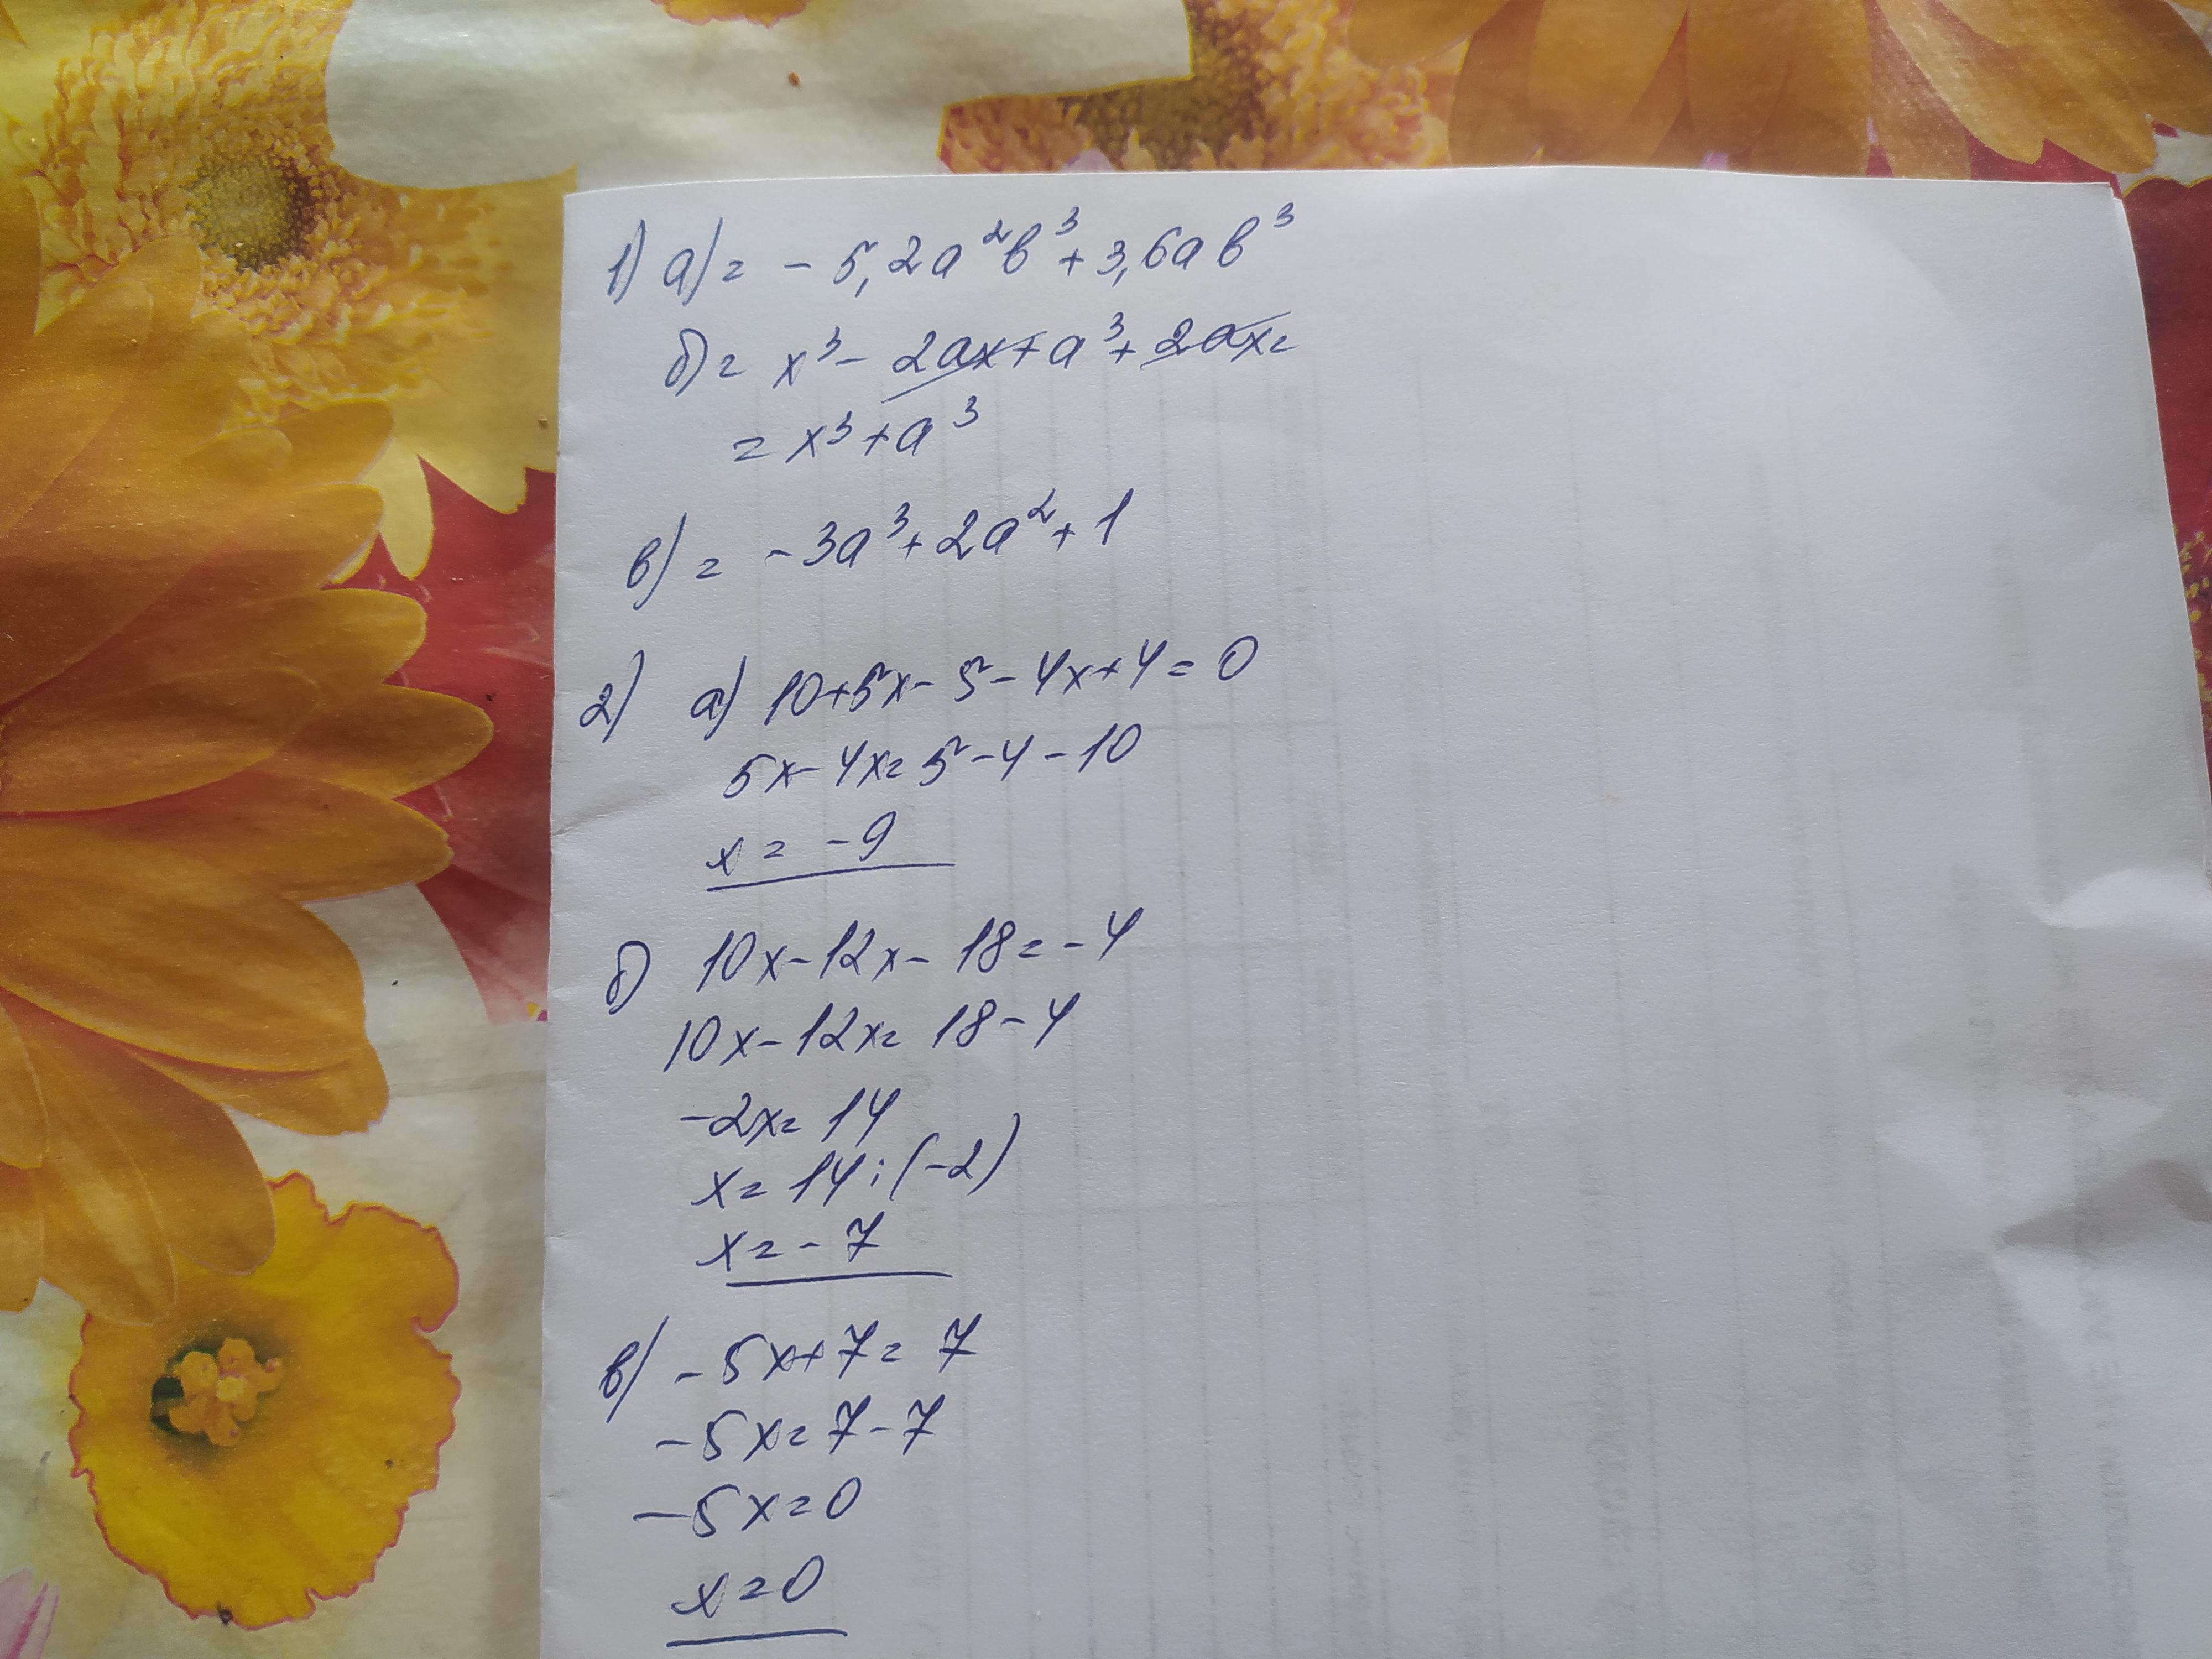 1) а) = - 5,2a²b³ + 3,6ab³
б) = x³ - 2ax + a³ + 2ax =
= x³ + a³
в) = -3a³ + 2a² + 1
2) а) 10 + 5x - 5 - 4x + 4 = 0
5x - 4x = 5 - 4 - 10
x = -9
б) 10x - 12x - 18 = -4
10x - 12x = 18 - 4
-2x = 14
x = 14 : (-2)
x = - 7
в) -5x + 7 = 7
-5x = 7 - 7
-5x = 0
x = 0